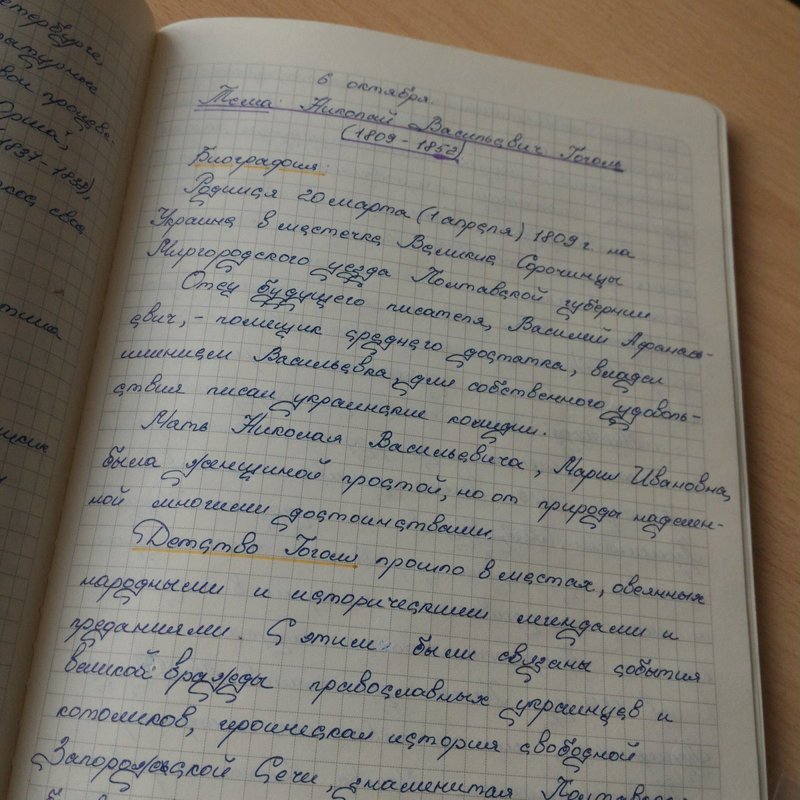 етербурге,
атурные
"Орша",
(1837-1838),
6 октября.
Тема: Николай Васильевич Гоголь
(1809-1852)
Биография:
Родился 20 марта (1 апреля) 1809 г. на
Украине в местечке Великие Сорочинцы
Миргородского уезда Полтавской губернии
Отец будущего писателя, Василий Афанась-
евич, - помещик среднего достатка, владел
имением Васильевка, для собственного удоволь-
ствия писал украинские комедии.
Мать Николая Васильевича, Мария Ивановна,
была женщиной простой, но от природы наделен-
ной многими достоинствами.
Детство Гоголя прошло в местах, овеянных
народными и историческими легендами и
преданиями. С этим были связаны события
великой вражды православных украинцев и
католиков, героическая история свободной
Запорожской Сечи, знаменитая